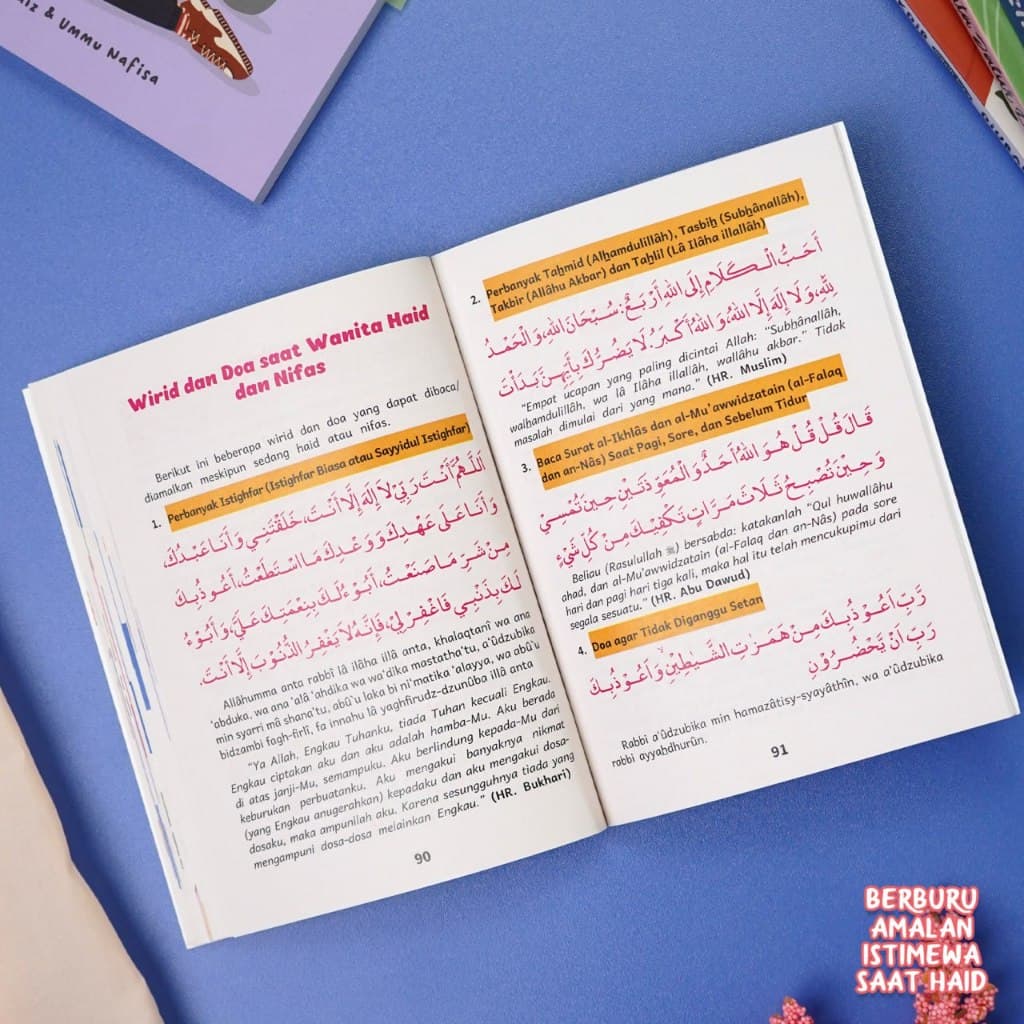 & Ummu Nafisa
Wirid dan Doa saat Wanita Haid
dan Nifas
Berikut ini beberapa wirid dan doa yang dapat dibaca/
diamalkan meskipun sedang haid atau nifas.
1. Perbanyak Istighfar (Istighfar Biasa atau Sayyidul Istighfar)
اَللّٰهُمَّ أَنْتَ رَبِّيْ لاَ إِلٰهَ إِلَّا أَنْتَ، خَلَقْتَنِيْ وَأَنَا عَبْدُكَ،
وَأَنَا عَلَى عَهْدِكَ وَوَعْدِكَ مَا اسْتَطَعْتُ، أَعُوذُ بِكَ
مِنْ شَرِّ مَا صَنَعْتُ، أَبُوْءُ لَكَ بِنِعْمَتِكَ عَلَيَّ، وَأَبُوْءُ
لَكَ بِذَنْبِيْ فَاغْفِرْ لِيْ، فَإِنَّهُ لَا يَغْفِرُ الذُّنُوْبَ إِلَّا أَنْتَ.
Allâhumma anta rabbî lâ ilâha illâ anta, khalaqtanî wa ana
'abduka, wa ana 'alâ 'ahdika wa wa'dika mastatha'tu, a'ûdzubika
min syarri mâ shana'tu, abû'u laka bi ni'matika 'alayya, wa abû'u
bidzambi fagh-firlî, fa innahu lâ yaghfirudz-dzunûba illâ anta
"Ya Allah, Engkau Tuhanku, tiada Tuhan kecuali Engkau.
Engkau ciptakan aku dan aku adalah hamba-Mu. Aku berada
di atas janji-Mu, semampuku. Aku berlindung kepada-Mu dari
keburukan perbuatanku. Aku mengakui banyaknya nikmat
(yang Engkau anugerahkan) kepadaku dan aku mengakui dosa-
dosaku, maka ampunilah aku. Karena sesungguhnya tiada yang
mengampuni dosa-dosa melainkan Engkau." (HR. Bukhari)
90
2. Perbanyak Taẖmid (Alẖamdulillâh), Tasbiẖ (Subẖânallâh),
Takbir (Allâhu Akbar) dan Taẖlil (Lâ Ilâha illallâh)
أَحَبُّ الْكَلَامِ إِلَى اللّٰهِ أَرْبَعٌ: سُبْحَانَ اللّٰهِ، وَالْحَمْدُ
لِلّٰهِ، وَلَا إِلٰهَ إِلَّا اللّٰهُ، وَاللّٰهُ أَكْبَرُ. لَا يَضُرُّكَ بِأَيِّهِنَّ بَدَأْتَ
"Empat ucapan yang paling dicintai Allah: "Subẖânallâh,
walẖamdulillâh, wa lâ Ilâha illallâh, wallâhu akbar." Tidak
masalah dimulai dari yang mana." (HR. Muslim)
3. Baca Surat al-Ikhlâs dan al-Mu'awwidzatain (al-Falaq
dan an-Nâs) Saat Pagi, Sore, dan Sebelum Tidur
قَالَ قُلْ قُلْ هُوَ اللّٰهُ أَحَدٌ وَالْمُعَوِّذَتَيْنِ حِيْنَ تُمْسِيْ
وَحِيْنَ تُصْبِحُ ثَلَاثَ مَرَّاتٍ تَكْفِيْكَ مِنْ كُلِّ شَيْءٍ
Beliau (Rasulullah ﷺ) bersabda: katakanlah "Qul huwallâhu
ahad, dan al-Mu'awwidzatain (al-Falaq dan an-Nâs) pada sore
hari dan pagi hari tiga kali, maka hal itu telah mencukupimu dari
segala sesuatu." (HR. Abu Dawud)
4. Doa agar Tidak Diganggu Setan
رَّبِّ اَعُوْذُ بِكَ مِنْ هَمَزٰتِ الشَّيٰطِيْنِ وَاَعُوْذُ بِكَ
رَبِّ اَنْ يَّحْضُرُوْنِ
Rabbi a'ûdzubika min hamazâtisy-syayâthîn, wa a'ûdzubika
rabbi ayyaẖdhurûn.
91
BERBURU
AMALAN
ISTIMEWA
SAAT HAID